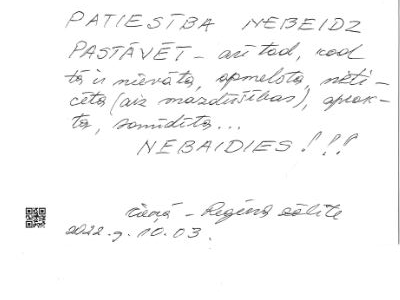 PATIESĪBA NEBEIDZ
PASTĀVĒT – arī tad, kad
tā ir nievāta, apmelota, neti-
cēta (aiz mazdūšības), aprak-
ta, samīdīta...
NEBAIDIES!!!
cieņā – Regīna
2022.g. 10.03.